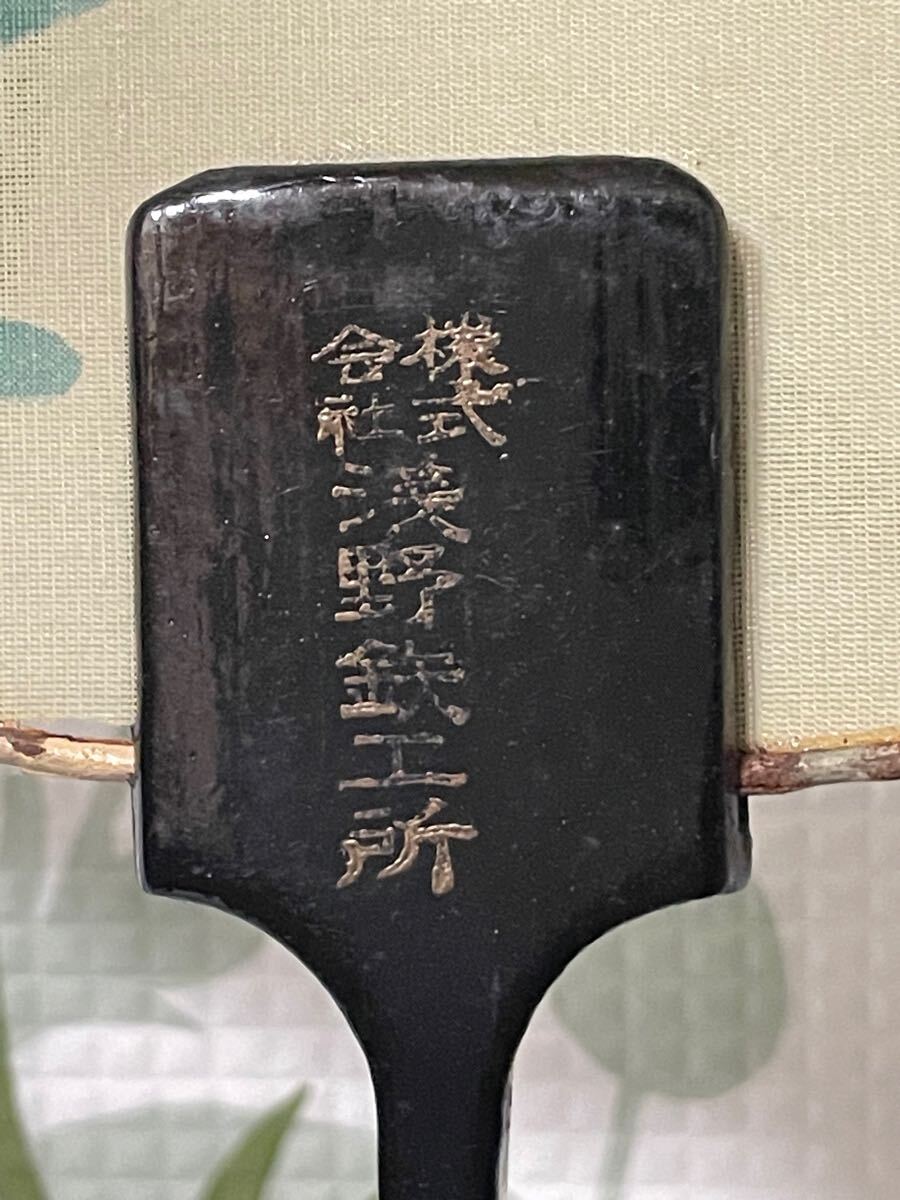 株式
会社
浅野鉄工所